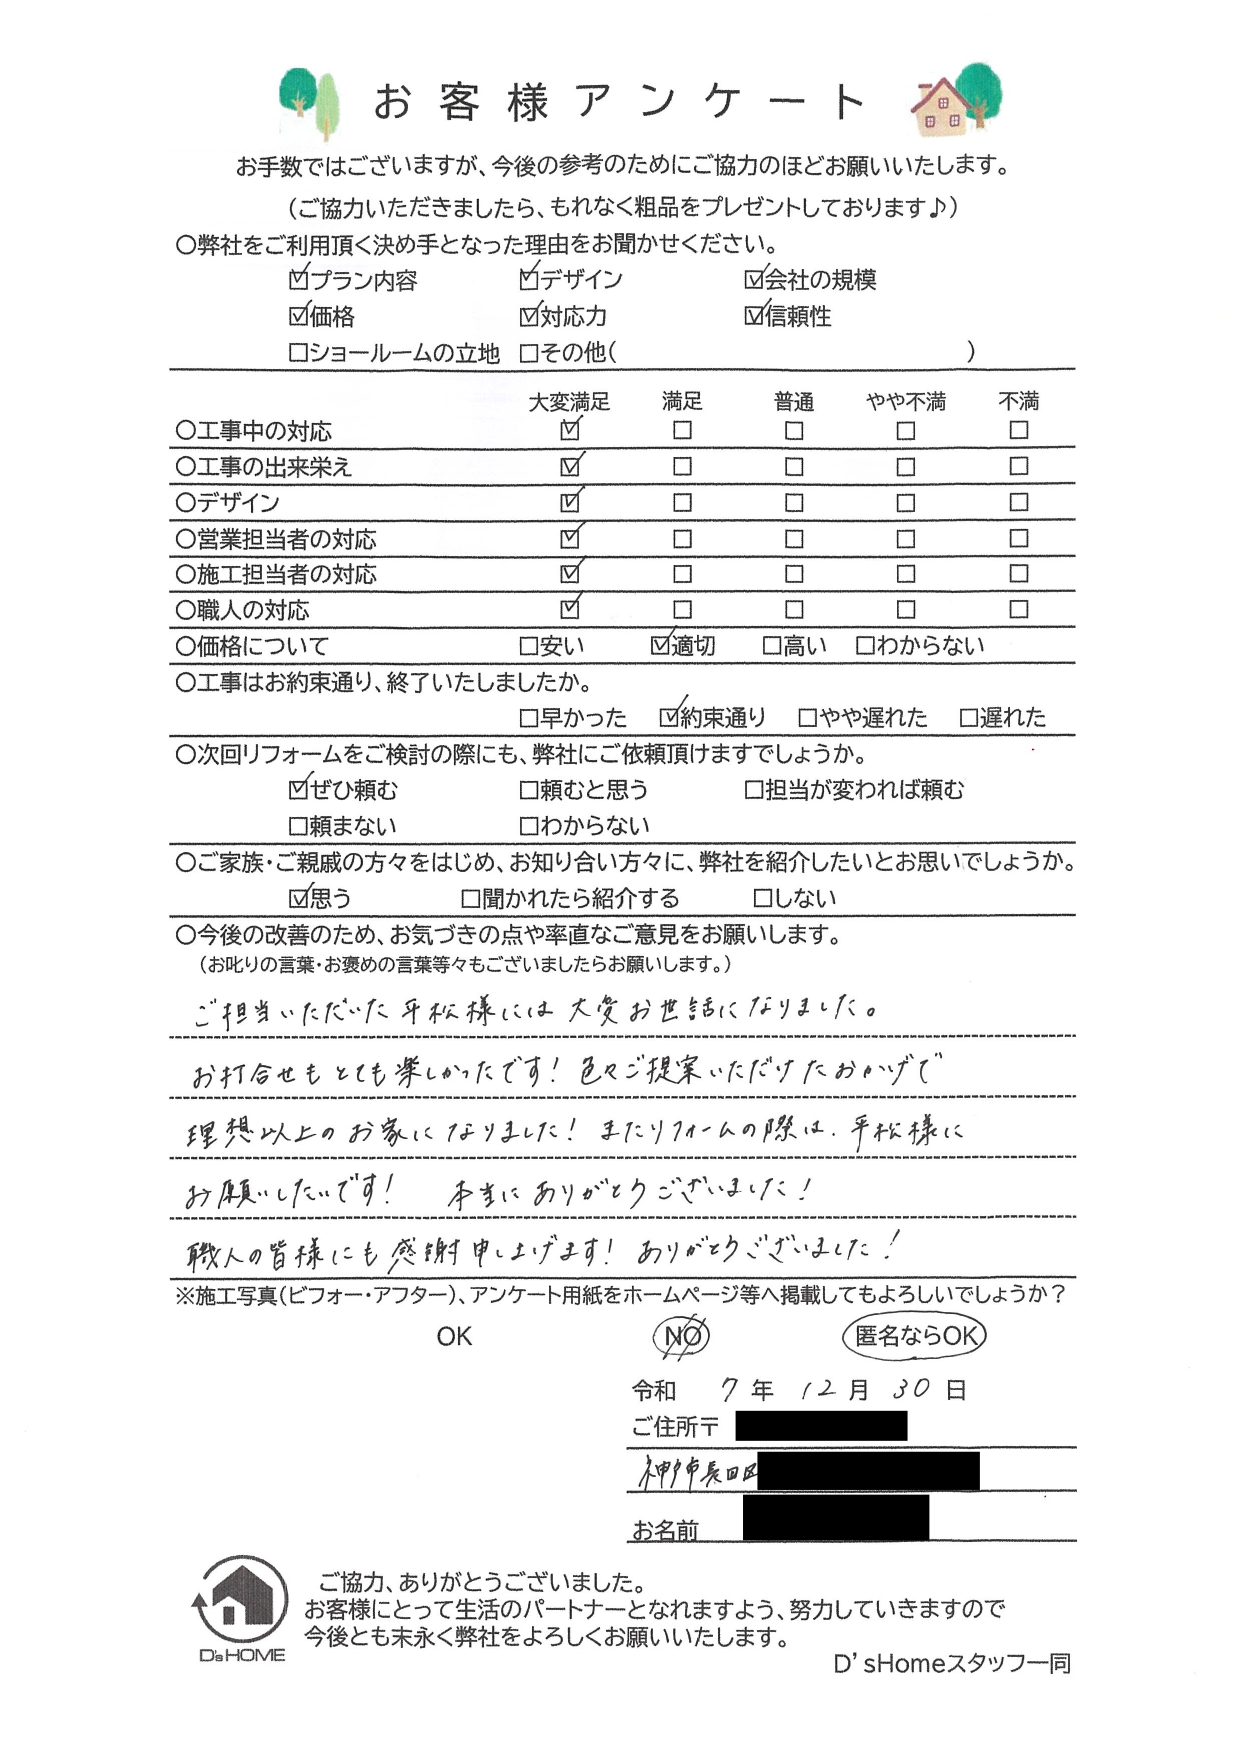 お客様アンケート
お手数ではございますが、今後の参考のためにご協力のほどお願いいたします。
（ご協力いただきましたら、もれなく粗品をプレゼントしております♪）
○弊社をご利用頂く決め手となった理由をお聞かせください。
☑プラン内容 ☑デザイン ☑会社の規模
☑価格 ☑対応力 ☑信頼性
□ショールームの立地 □その他( )
大変満足 満足 普通 やや不満 不満
○工事中の対応 ☑ □ □ □ □
○工事の出来栄え ☑ □ □ □ □
○デザイン ☑ □ □ □ □
○営業担当者の対応 ☑ □ □ □ □
○施工担当者の対応 ☑ □ □ □ □
○職人の対応 ☑ □ □ □ □
○価格について □安い ☑適切 □高い □わからない
○工事はお約束通り、終了いたしましたか。
□早かった ☑約束通り □やや遅れた □遅れた
○次回リフォームをご検討の際にも、弊社にご依頼頂けますでしょうか。
☑ぜひ頼む □頼むと思う □担当が変われば頼む
□頼まない □わからない
○ご家族・ご親戚の方々をはじめ、お知り合い方々に、弊社を紹介したいとお思いでしょうか。
☑思う □聞かれたら紹介する □しない
○今後の改善のため、お気づきの点や率直なご意見をお願いします。
（お叱りの言葉・お褒めの言葉等々もございましたらお願いします。）
ご担当いただいた平松様には大変お世話になりました。
お打合せもとても楽しかったです！色々ご提案いただけたおかげで
理想以上のお家になりました！またリフォームの際は、平松様に
お願いしたいです！ 本当にありがとうございました！
職人の皆様にも感謝申し上げます！ありがとうございました！
※施工写真（ビフォー・アフター）、アンケート用紙をホームページ等へ掲載してもよろしいでしょうか？
OK NO 匿名ならOK
令和 7 年 12 月 30 日
ご住所〒
神戸市長田区
お名前
ご協力、ありがとうございました。
お客様にとって生活のパートナーとなれますよう、努力していきますので
今後とも末永く弊社をよろしくお願いいたします。
D's HOME
D'sHomeスタッフ一同